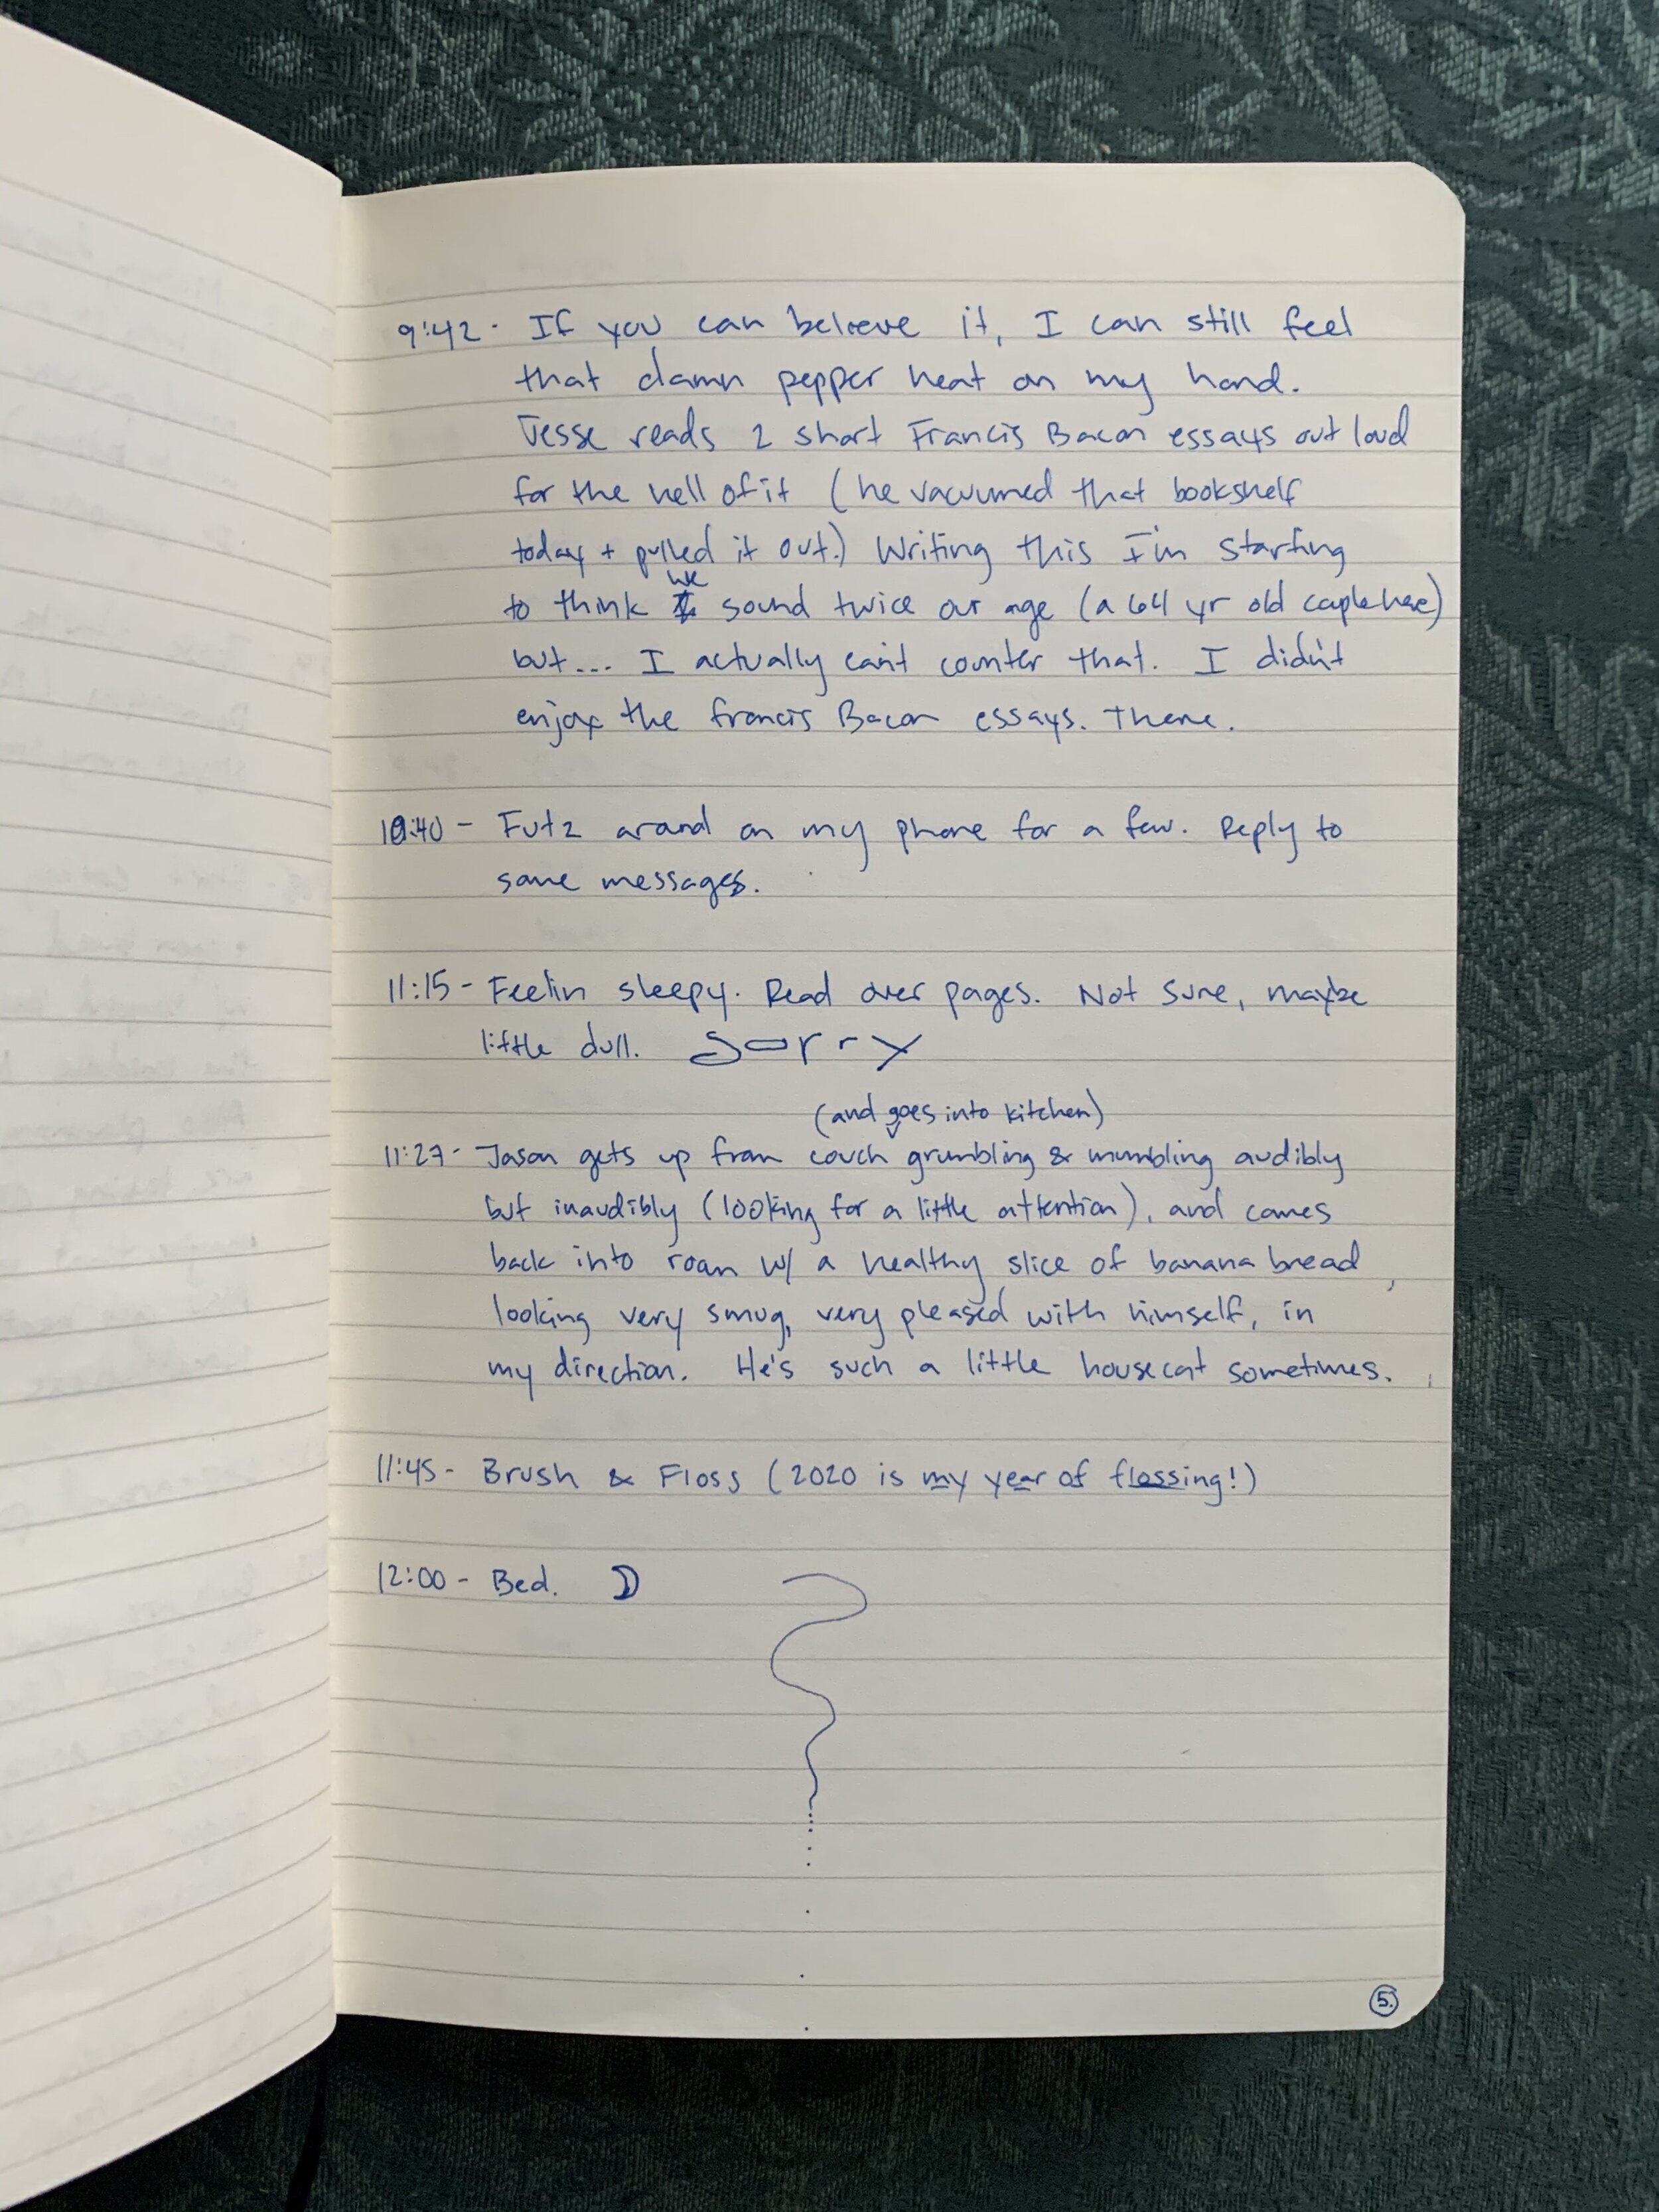 9:42 - If you can beleeve it, I can still feel
that damn pepper heat on my hand.
Jesse reads 2 short Francis Bacon essays out loud
for the hell of it (he vacuumed that bookshelf
today + pulled it out.) Writing this I'm starting
to think we sound twice our age (a 64 yr old couple here)
but... I actually can't counter that. I didn't
enjoy the Francis Bacon essays. There.
10:40 - Futz around on my phone for a few. Reply to
some messages.
11:15 - Feelin sleepy. Read over pages. Not sure, maybe
little dull. Sorry
(and goes into kitchen)
11:27 - Jason gets up from couch grumbling & mumbling audibly
but inaudibly (looking for a little attention), and comes
back into room w/ a healthy slice of banana bread,
looking very smug, very pleased with himself, in
my direction. He's such a little housecat sometimes.
11:45 - Brush & Floss (2020 is my year of flossing!)
12:00 - Bed.
5.